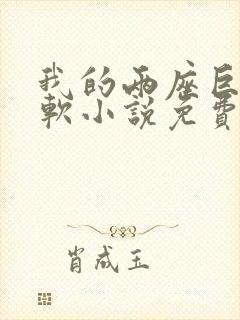 我的两座巨
软小說免費
肖成玉